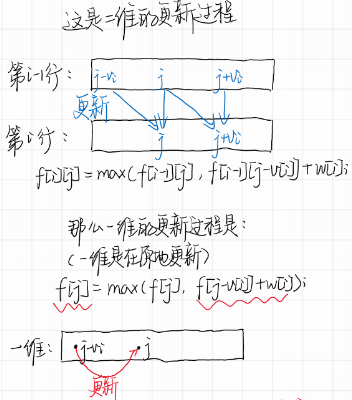 这是二维的更新过程
第i-1行: j-vi j j+vi
更新
第i行: j j+vi
f[i][j]=max(f[i-1][j], f[i-1][j-v[i]]+w[i]);
那么一维的更新过程是:
(一维是在原地更新)
f[j]=max(f[j], f[j-v[i]]+w[i]);
一维: j-vi j
更新